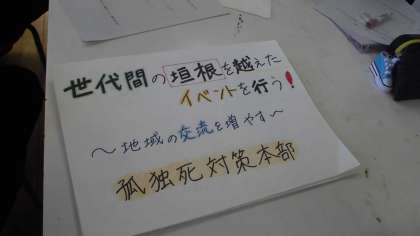 世代間の垣根を越えた
イベントを行う!
～地域の交流を増やす～
孤独死対策本部